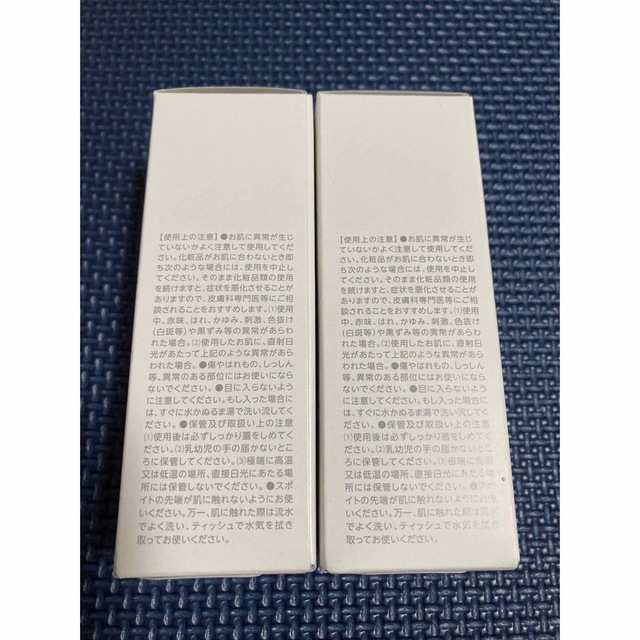 【使用上の注意】●お肌に異常が生じ
ていないかよく注意して使用してくだ
さい。化粧品がお肌に合わないとき即
ち次のような場合には、使用を中止し
てください。そのまま化粧品類の使用
を続けますと、症状を悪化させることが
ありますので、皮膚科専門医等にご相
談されることをおすすめします。(1)使用
中、赤味、はれ、かゆみ、刺激、色抜け
(白斑等)や黒ずみ等の異常があらわ
れた場合。(2)使用したお肌に、直射日
光があたって上記のような異常があら
われた場合。●傷やはれもの、しっしん
等、異常のある部位にはお使いになら
ないでください。●目に入らないように
注意してください。もし入った場合に
は、すぐに水かぬるま湯で洗い流してく
ださい。●保管及び取扱い上の注意
(1)使用後は必ずしっかり蓋をしめてく
ださい。(2)乳幼児の手の届かないとこ
ろに保管してください。(3)極端に高温
又は低温の場所、直接日光にあたる場
所には保管しないでください。●スポ
イトの先端が肌に触れないようにお使
いください。万一、肌に触れた際は流水
でよく洗い、ティッシュで水気を拭き
取ってお使いください。
【使用上の注意】●お肌に異常が生じ
ていないかよく注意して使用してくだ
さい。化粧品がお肌に合わないとき即
ち次のような場合には、使用を中止し
てください。そのまま化粧品類の使用
を続けますと、症状を悪化させることが
ありますので、皮膚科専門医等にご相
談されることをおすすめします。(1)使用
中、赤味、はれ、かゆみ、刺激、色抜け
(白斑等)や黒ずみ等の異常があらわ
れた場合。(2)使用したお肌に、直射日
光があたって上記のような異常があら
われた場合。●傷やはれもの、しっしん
等、異常のある部位にはお使いになら
ないでください。●目に入らないように
注意してください。もし入った場合に
は、すぐに水かぬるま湯で洗い流してく
ださい。●保管及び取扱い上の注意
(1)使用後は必ずしっかり蓋をしめてく
ださい。(2)乳幼児の手の届かないとこ
ろに保管してください。(3)極端に高温
又は低温の場所、直接日光にあたる場
所には保管しないでください。●スポ
イトの先端が肌に触れないようにお使
いください。万一、肌に触れた際は流水
でよく洗い、ティッシュで水気を拭き
取ってお使いください。